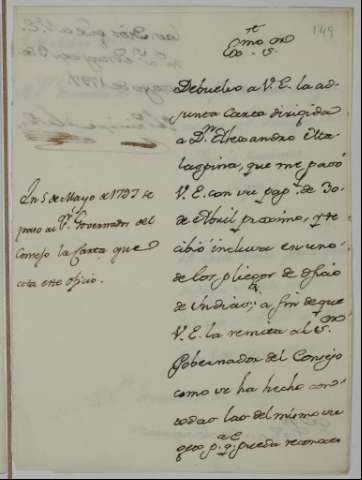 149
Exmo. Sor.
Debuelvo a V.E. la ad-
junta Carta dirigida
a Dn. Alexandro Ma-
laspina, que me pasó
V.E. con su papl. de 30
de Abril proximo, y re-
cibió inclusa en uno
de los pliegos de oficio
de Indias; a fin de que
V.E. la remita al Sor.
Gobernador del Consejo
como se ha hecho con
todas las del mismo su
geto pa. qe. pueda reconoce
En 5 de Mayo de 1797 se
paso al Sr. Governador del
Consejo la Carta que
cita este oficio.